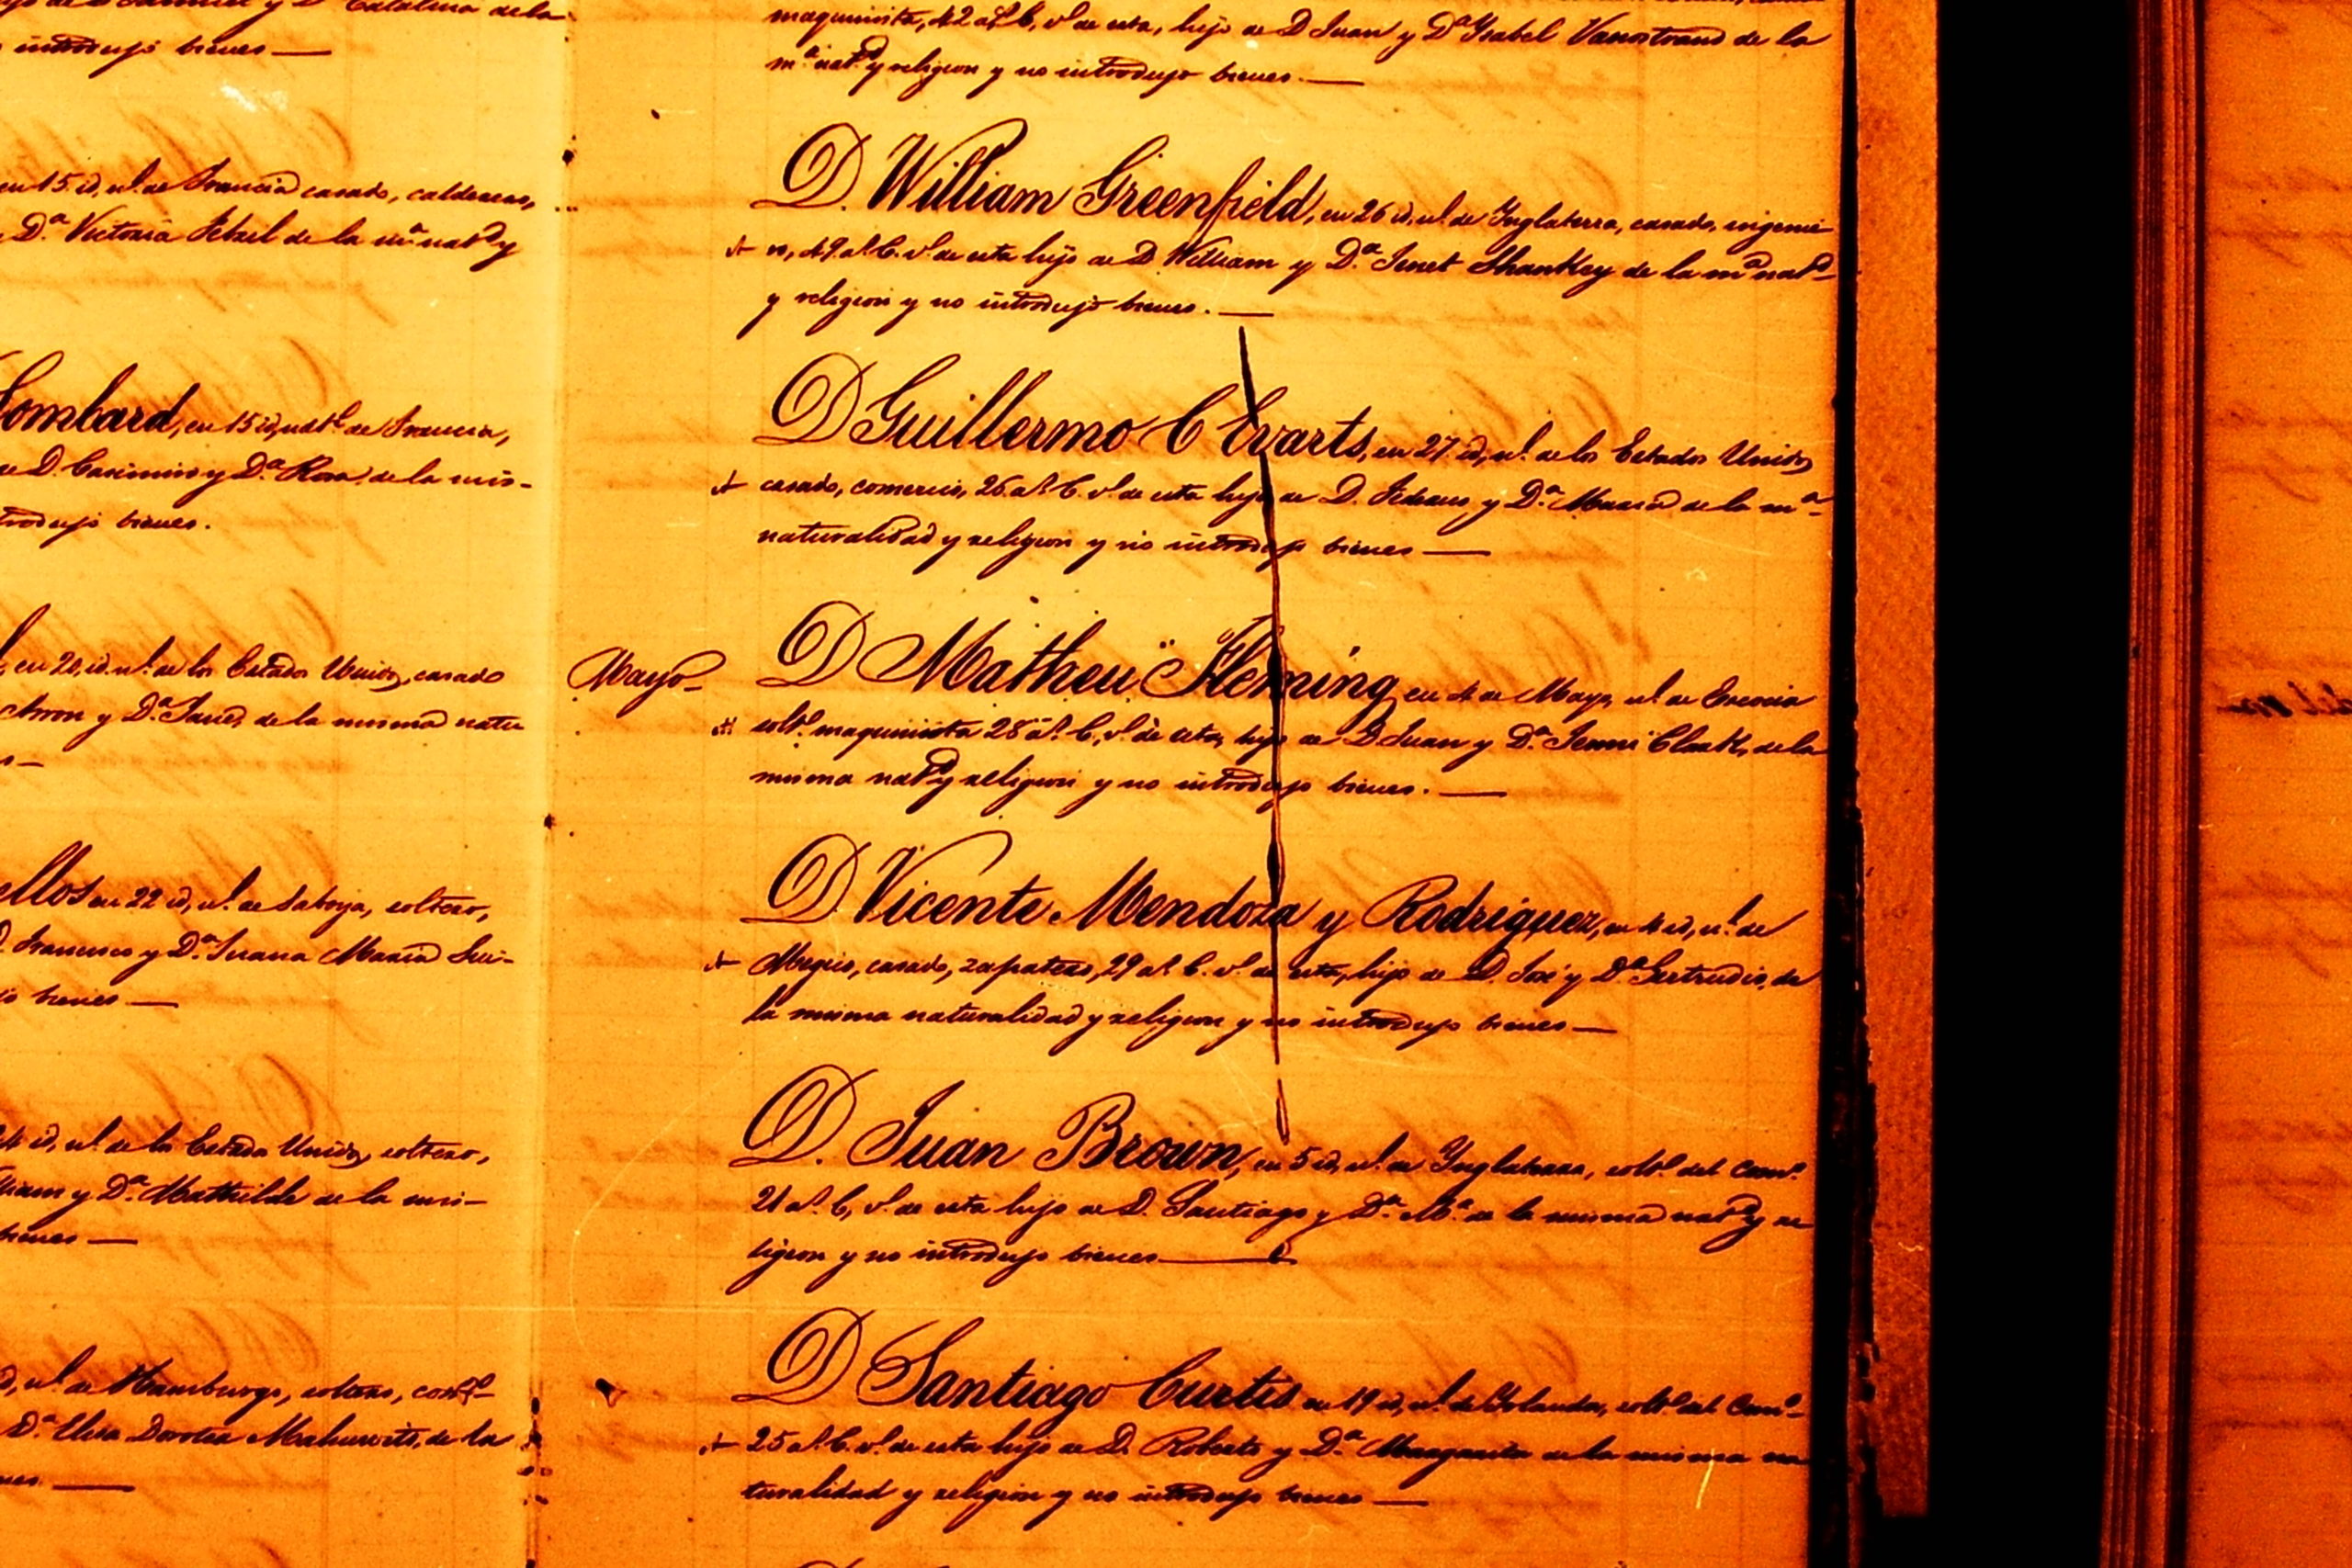 introdujo bienes —
en 15 id, nl. de Francia casado, calderero,
Dª Victoria Jetzel de la mª natd y
Lombard, en 15 id, natl de Francia,
de D. Casimiro y Dª Rosa, de la mis-
trodujo bienes.
en 20, id. nl. de los Estados Unidos, casado
Arron y Dª Jane, de la misma natu
en 22 id, nl. de Saboya, soltero,
D. Francisco y Dª Juana Maria
jo bienes —
id, nl. de los Estados Unidos, soltero,
lliam y Dª Mathilde de la mis-
bienes —
id, nl. de Hamburgo, soltero,
Dª Elisa Dorotea de la
maquinista, 42 a.s C, vº de esta, hijo de D Juan y Dª Ysabel Vanostrand de la
mª natd y religion y no introdujo bienes. —
D. William Greenfield, en 26 id, nl. de Ynglaterra, casado, ingenie-
ro, 49 a.s C. vº de esta hijo de D William y Dª Jenet Shankey de la mª natd
y religion y no introdujo bienes. —
D Guillermo C Evarts, en 27 id, nl. de los Estados Unidos
casado, comercio, 26 a.s C. vº de esta hijo de D. y Dª Maria de la mª
naturalidad y religion y no introdujo bienes —
Mayo
D Matheu Fleming en 4 de Mayo, nl. de Escocia
soltº maquinista 28 a.s C, vº de esta, hijo de D Juan y Dª Jenni Clark, de la
misma natd y religion y no introdujo bienes. —
D. Vicente Mendoza y Rodriguez, en 4 id, nl. de
Mégico, casado, zapatero, 29 a.s C. vº de esta, hijo de D. José y Dª Gertrudis, de
la misma naturalidad y religion y no introdujo bienes —
D. Juan Brown, en 5 id, nl. de Ynglaterra, soltº del Comº
21 a.s C, vº de esta hijo de D. Santiago y Dª Mª de la misma natd y re
ligion y no introdujo bienes —
D Santiago Curtis en 19 id, nl. de Yrlanda, soltº del Comº
25 a.s C. vº de esta hijo de D. Roberto y Dª Margarita de la misma na
turalidad y religion y no introdujo bienes —